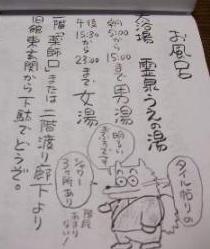 お風呂
浴湯 霊泉うえの湯
朝5:00から15:00まで男湯
午後15:30から23:00まで女湯
一階「薬師口」または二階渡り廊下より
旧館東玄関から下駄でどうぞ。
タイル貼りの
明るい
おふろです
シャワー
3ヶ所あり
階段
あまり
ない!